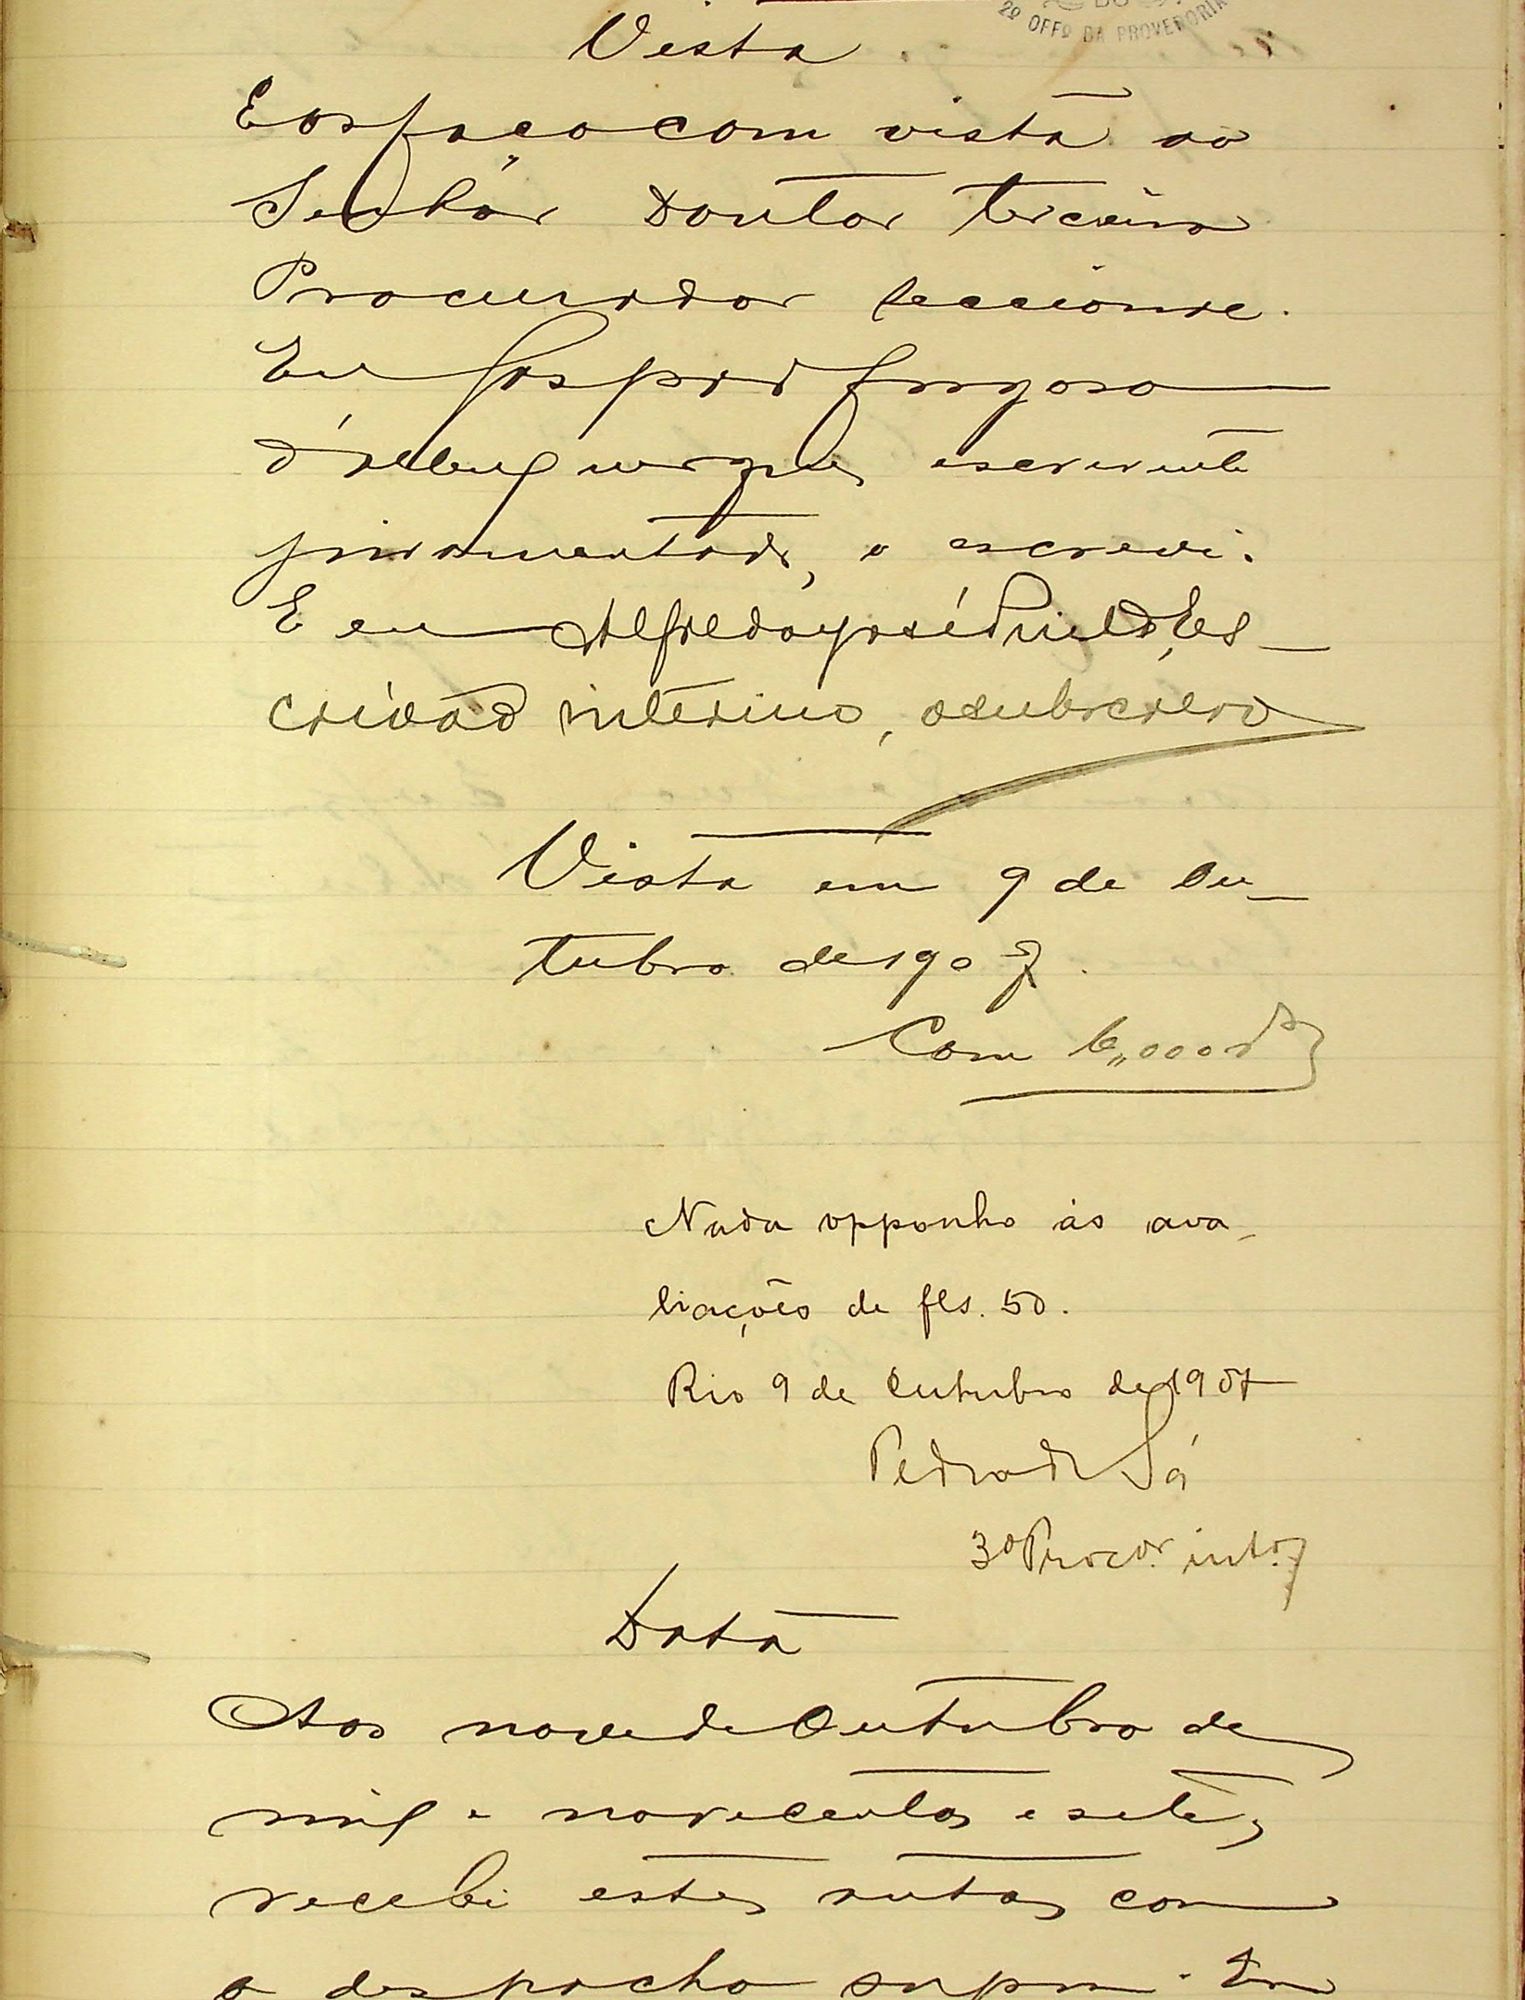 DO
2º OFFº DA PROVEDORIA
Vista
E os faço com vista ao
Senhor Doutor terceiro
Procurador Seccional.
Eu Gaspar Fragoso
d'Albuquerque, escrevente
juramentado, o escrevi.
E eu Alfredo José Es-
crivão interino, o subscrevo
Vista em 9 de Ou-
tubro de 1907.
Com 6,,000 rs
Nada opponho ás ava-
liações de fls. 50.
Rio 9 de Outubro de 1907
Pedro de Sá
3º Procor. into.
Data
Aos nove de Outubro de
mil e novecentos e sete,
recebi estes autos com
o despacho supra. Eu